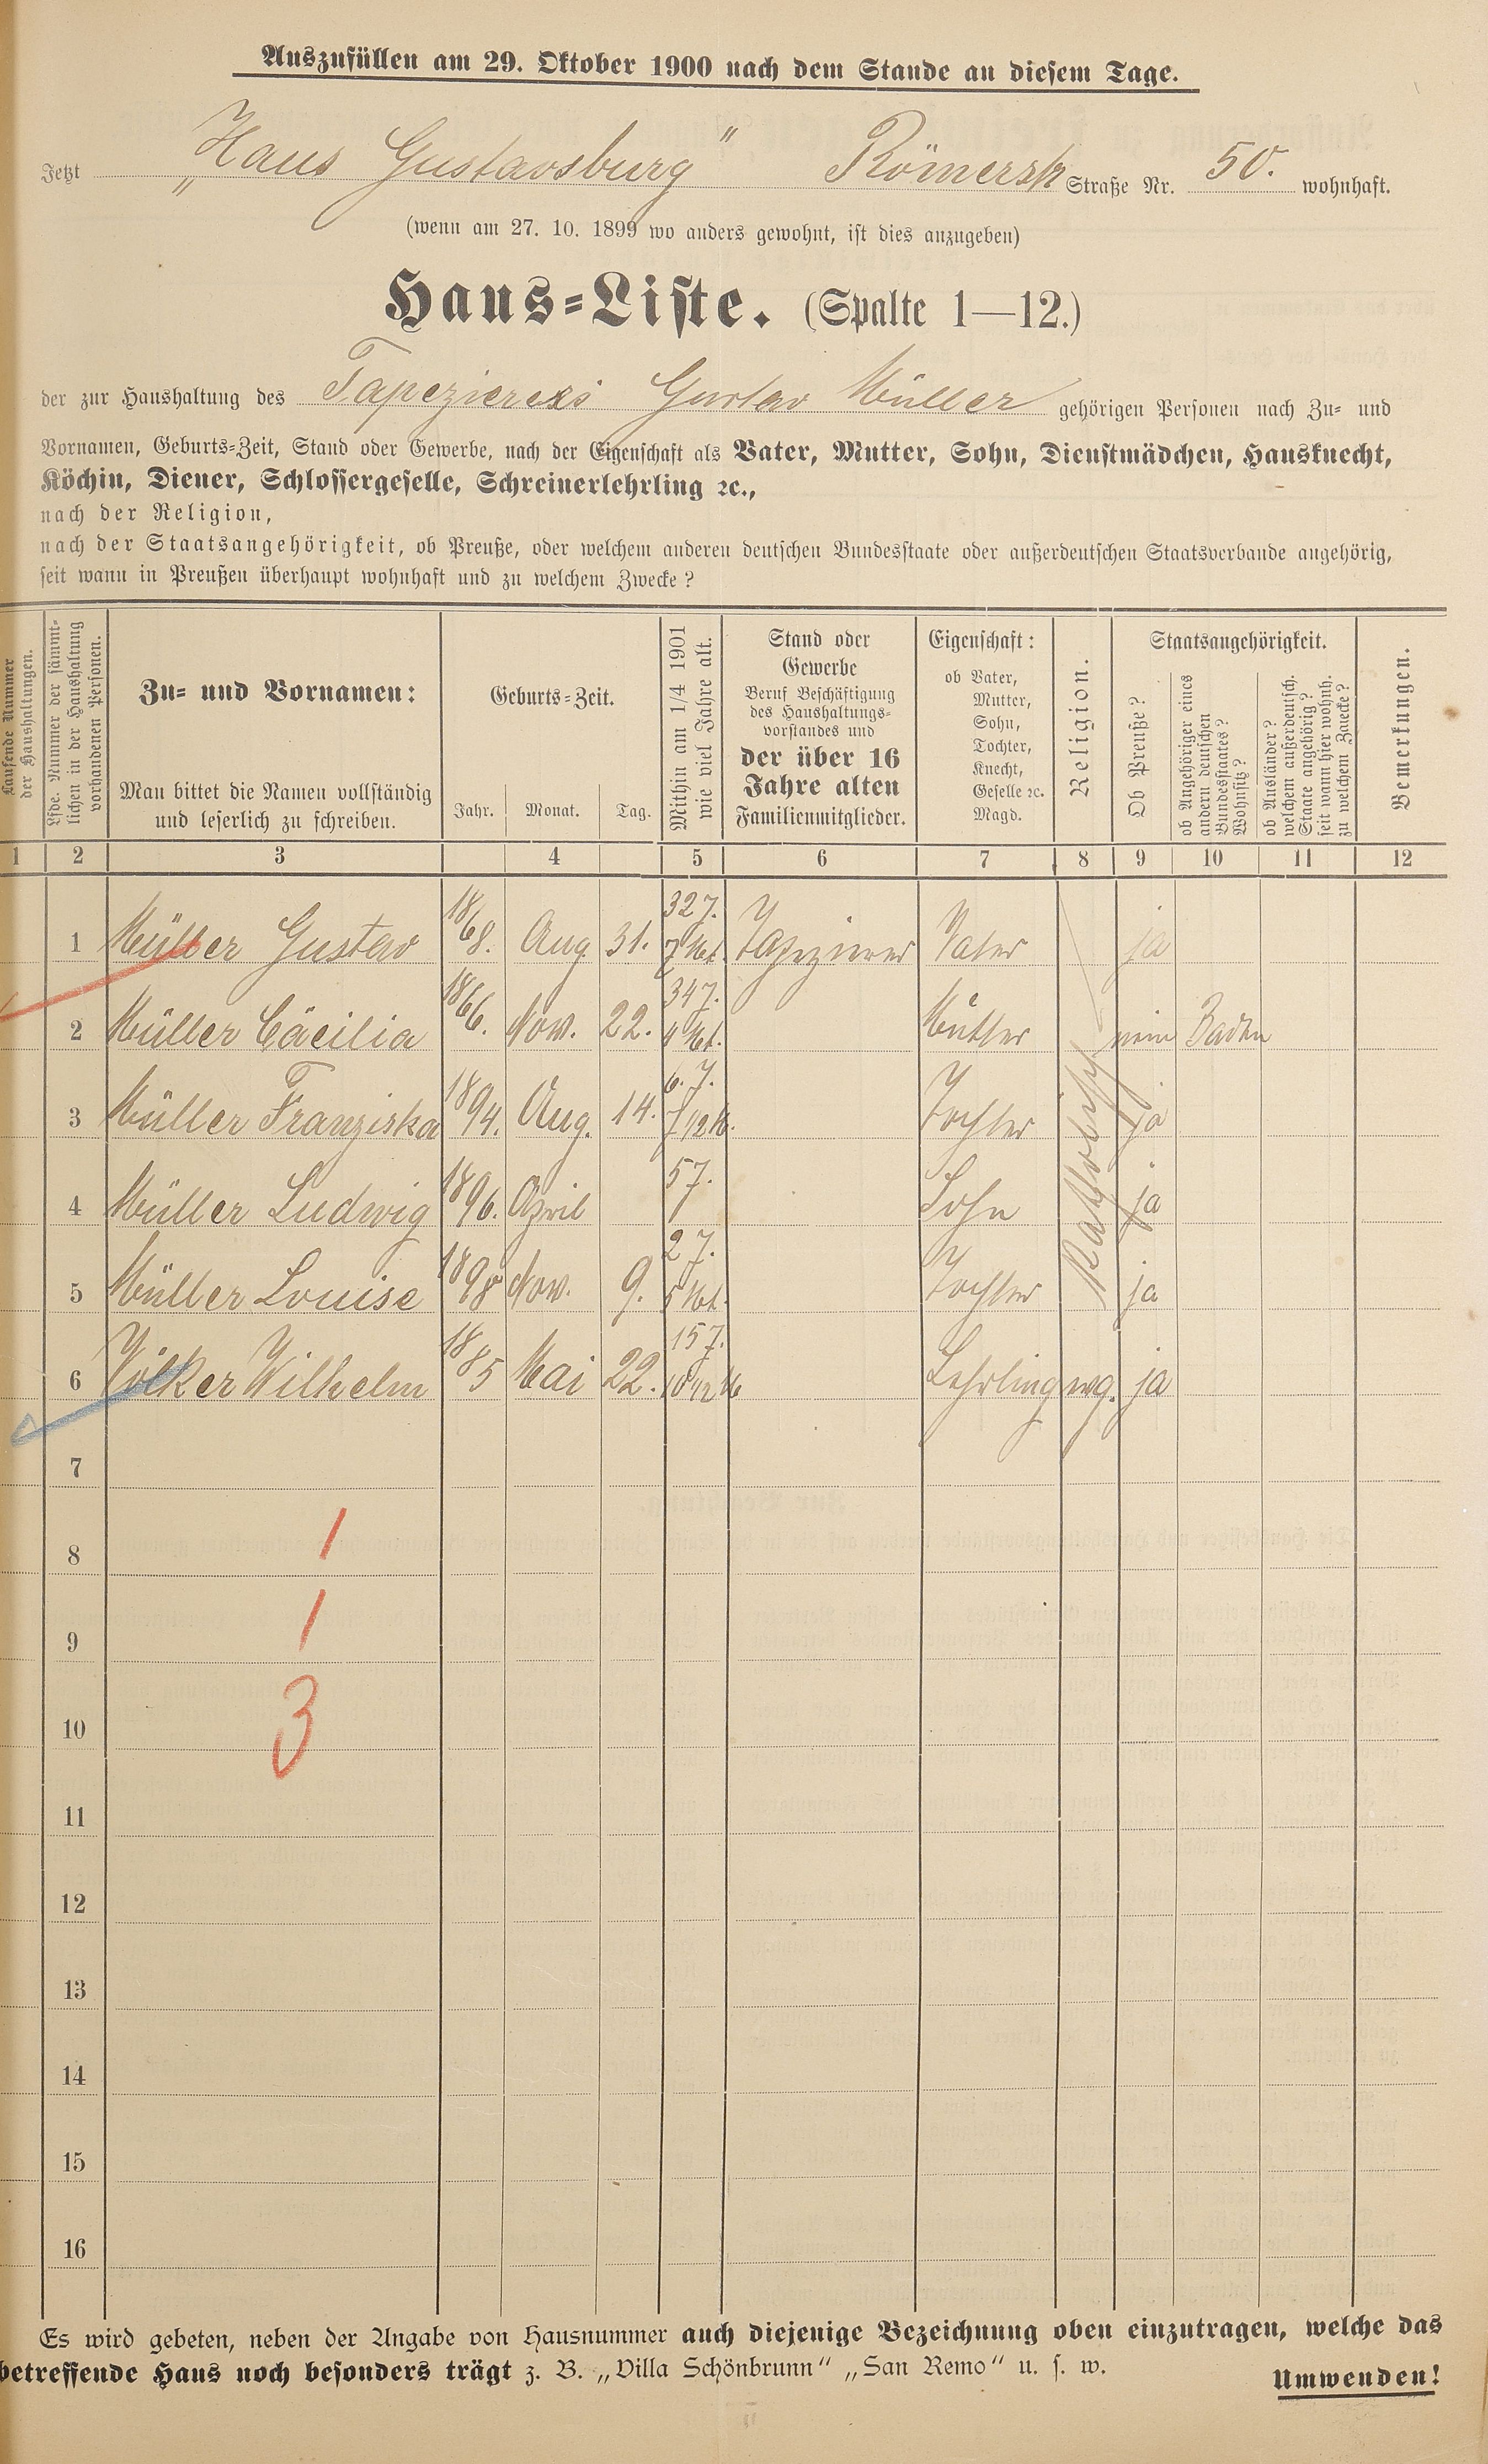 Auszufüllen am 29. Oktober 1900 nach dem Stande an diesem Tage.
Jetzt „Haus Gustavsburg" Römerstr Straße Nr. 50. wohnhaft.
(wenn am 27. 10. 1899 wo anders gewohnt, ist dies anzugeben)
Haus-Liste. (Spalte 1—12.)
der zur Haushaltung des Gustav Müller gehörigen Personen nach Zu- und
Vornamen, Geburts-Zeit, Stand oder Gewerbe, nach der Eigenschaft als Vater, Mutter, Sohn, Dienstmädchen, Hausknecht,
Köchin, Diener, Schlossergeselle, Schreinerlehrling ꝛc.,
nach der Religion,
nach der Staatsangehörigkeit, ob Preuße, oder welchem anderen deutschen Bundesstaate oder außerdeutschen Staatsverbande angehörig,
seit wann in Preußen überhaupt wohnhaft und zu welchem Zwecke?
Laufende Nummer
der Haushaltungen.
Lfde. Nummer der sämmt-
lichen in der Haushaltung
vorhandenen Personen.
Zu- und Vornamen:
Man bittet die Namen vollständig
und leserlich zu schreiben.
Geburts-Zeit.
Jahr. Monat. Tag.
Mithin am 1/4 1901
wie viel Jahre alt.
Stand oder
Gewerbe
Beruf Beschäftigung
des Haushaltungs-
vorstandes und
der über 16
Jahre alten
Familienmitglieder.
Eigenschaft:
ob Vater,
Mutter,
Sohn,
Tochter,
Knecht,
Geselle ꝛc.
Magd.
Religion.
Staatsangehörigkeit.
Ob Preuße?
ob Angehöriger eines
andern deutschen
Bundesstaates?
Wohnsitz?
ob Ausländer?
welchem außerdeutsch.
Staate angehörig?
seit wann hier wohnh.
zu welchem Zwecke?
Bemerkungen.
1 2 3 4 5 6 7 8 9 10 11 12
1 Müller Gustav 1868. Aug. 31. 32 J. 7 Mt. Tapezierer Vater ja
2 Müller Cäcilia 1866. Nov. 22. 34 J. 4 Mt. Mutter nein Baden
3 Müller Franziska 1894. Aug. 14. 6. J. 7 1/2 M. Tochter ja
Katholisch
4 Müller Ludwig 1896. April 5 J. Sohn ja
5 Müller Louise 1898 Nov. 9. 2 J. 5 Mt. Tochter ja
6 Völker Wilhelm 1885 Mai 22. 15 J. Lehrling evg. ja
7
8 1
9 1
10 3
11
12
13
14
15
16
Es wird gebeten, neben der Angabe von Hausnummer auch diejenige Bezeichnung oben einzutragen, welche das
betreffende Haus noch besonders trägt z. B. „Villa Schönbrunn" „San Remo" u. s. w.
Umwenden!